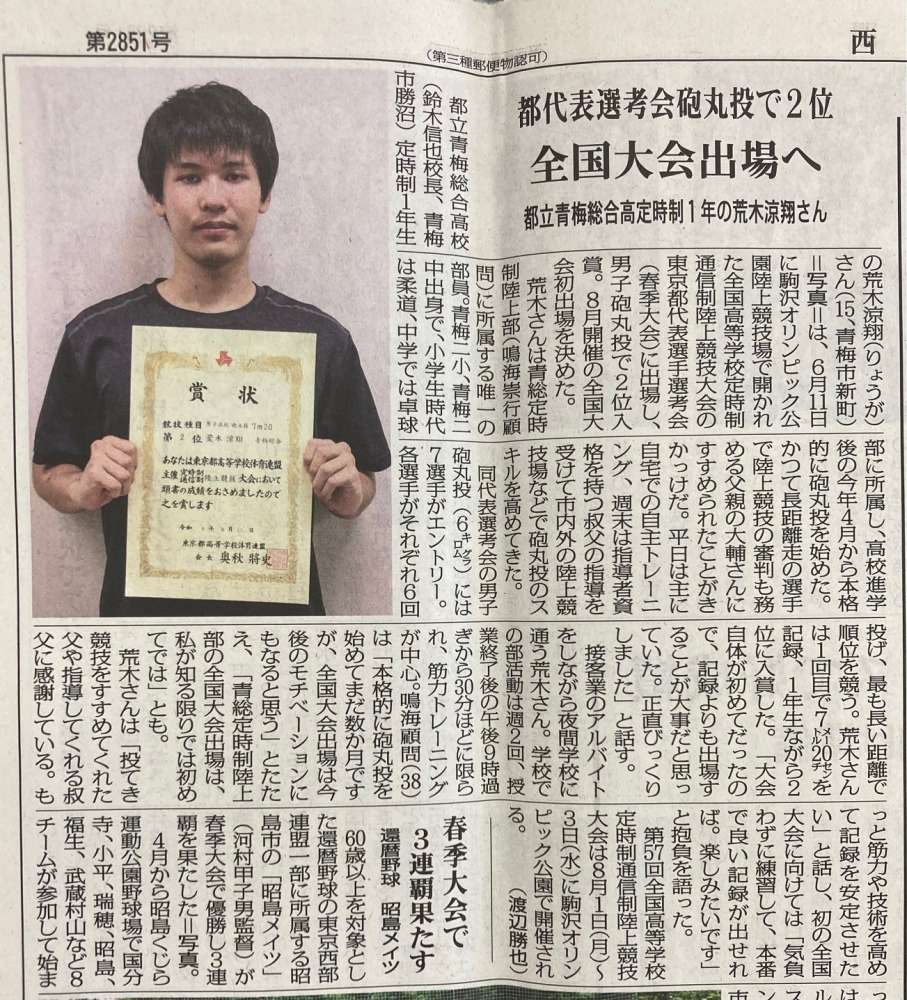 第2851号
(第三種郵便物認可)
西
都代表選考会砲丸投で2位
全国大会出場へ
都立青梅総合高定時制1年の荒木涼翔さん
都立青梅総合高校
(鈴木信也校長、青梅
市勝沼)定時制1年生
の荒木涼翔(りょうが)
さん(15、青梅市新町)
=写真=は、6月11日
に駒沢オリンピック公
園陸上競技場で開かれ
た全国高等学校定時制
通信制陸上競技大会の
東京都代表選手選考会
(春季大会)に出場し、
男子砲丸投で2位入
賞。8月開催の全国大
会初出場を決めた。
荒木さんは青総定時
制陸上部(鳴海崇行顧
問)に所属する唯一の
部員。青梅二小、青梅二
中出身で、小学生時代
は柔道、中学では卓球
部に所属し、高校進学
後の今年4月から本格
的に砲丸投を始めた。
かつて長距離走の選手
で陸上競技の審判も務
める父親の大輔さんに
すすめられたことがき
っかけだ。平日は主に
自宅での自主トレーニ
ング、週末は指導者資
格を持つ叔父の指導を
受けて市内外の陸上競
技場などで砲丸投のス
キルを高めてきた。
同代表選考会の男子
砲丸投(6キログラム)には
7選手がエントリー。
各選手がそれぞれ6回
投げ、最も長い距離で
順位を競う。荒木さん
は1回目で7メートル20センチを
記録、1年生ながら2
位に入賞した。「大会
自体が初めてだったの
で、記録よりも出場す
ることが大事だと思っ
ていた。正直びっくり
しました」と話す。
接客業のアルバイト
をしながら夜間学校に
通う荒木さん。学校で
の部活動は週2回、授
業終了後の午後9時過
ぎから30分ほどに限ら
れ、筋力トレーニング
が中心。鳴海顧問(38)
は「本格的に砲丸投を
始めてまだ数か月です
が、全国大会出場は今
後のモチベーションに
もなると思う」とたた
え、「青総定時制陸上
部の全国大会出場は、
私が知る限りでは初め
てでは」とも。
荒木さんは「投てき
競技をすすめてくれた
父や指導してくれる叔
父に感謝している。も
っと筋力や技術を高め
て記録を安定させた
い」と話し、初の全国
大会に向けては「気負
わずに練習して、本番
で良い記録が出せれ
ば。楽しみたいです」
と抱負を語った。
第57回全国高等学校
定時制通信制陸上競技
大会は8月1日(月)〜
3日(水)に駒沢オリン
ピック公園で開催され
る。(渡辺勝也)
賞状
競技種目 男子 砲丸投 7m20
第2位 荒木涼翔 青梅総合
あなたは東京都高等学校体育連盟
主催 定時制通信制 陸上競技 大会において
頭書の成績をおさめましたので
之を賞します
東京都高等学校体育連盟
会長 奥秋將史
春季大会で
3連覇果たす
還暦野球 昭島メイツ
60歳以上を対象とし
た還暦野球の東京西部
連盟一部に所属する昭
島市の「昭島メイツ」
(河村甲子男監督)が
春季大会で優勝し3連
覇を果たした=写真。
4月から昭島くじら
運動公園野球場で国分
寺、小平、瑞穂、昭島、
福生、武蔵村山など8
チームが参加して始ま